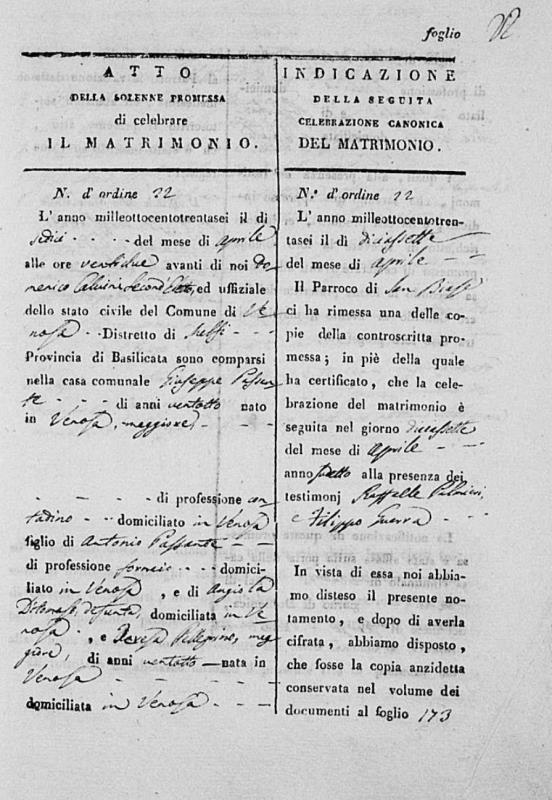 foglio
ATTO
DELLA SOLENNE PROMESSA
di celebrare
IL MATRIMONIO.
N. d'ordine 22
L'anno milleottocentotrentasei il di
sedici del mese di aprile
alle ore ventidue avanti di noi Do-
menico Calvini Second' Eletto, ed uffiziale
dello stato civile del Comune di Ve-
nosa Distretto di Melfi
Provincia di Basilicata sono comparsi
nella casa comunale Giuseppe Passan-
te di anni ventotto nato
in Venosa, maggiore,
di professione con-
tadino domiciliato in Venosa
figlio di Antonio Passante
di professione fornaio domici-
liato in Venosa, e di Angiola
Ditomaso, defunta, domiciliata in Ve-
nosa, e Teresa Pellegrino, mag-
giore, di anni ventotto nata in
Venosa
domiciliata in Venosa
INDICAZIONE
DELLA SEGUITA
CELEBRAZIONE CANONICA
DEL MATRIMONIO.
N.° d'ordine 22
L'anno milleottocentotren-
tasei il dì diciassette
del mese di aprile
Il Parroco di San Biase
ci ha rimessa una delle co-
pie della controscritta pro-
messa; in piè della quale
ha certificato, che la cele-
brazione del matrimonio è
seguita nel giorno diciassette
del mese di aprile
anno detto alla presenza dei
testimonj Raffaele Palmieri,
e Filippo Guerra
In vista di essa noi abbia-
mo disteso il presente no-
tamento, e dopo di averla
cifrata, abbiamo disposto,
che fosse la copia anzidetta
conservata nel volume dei
documenti al foglio 173